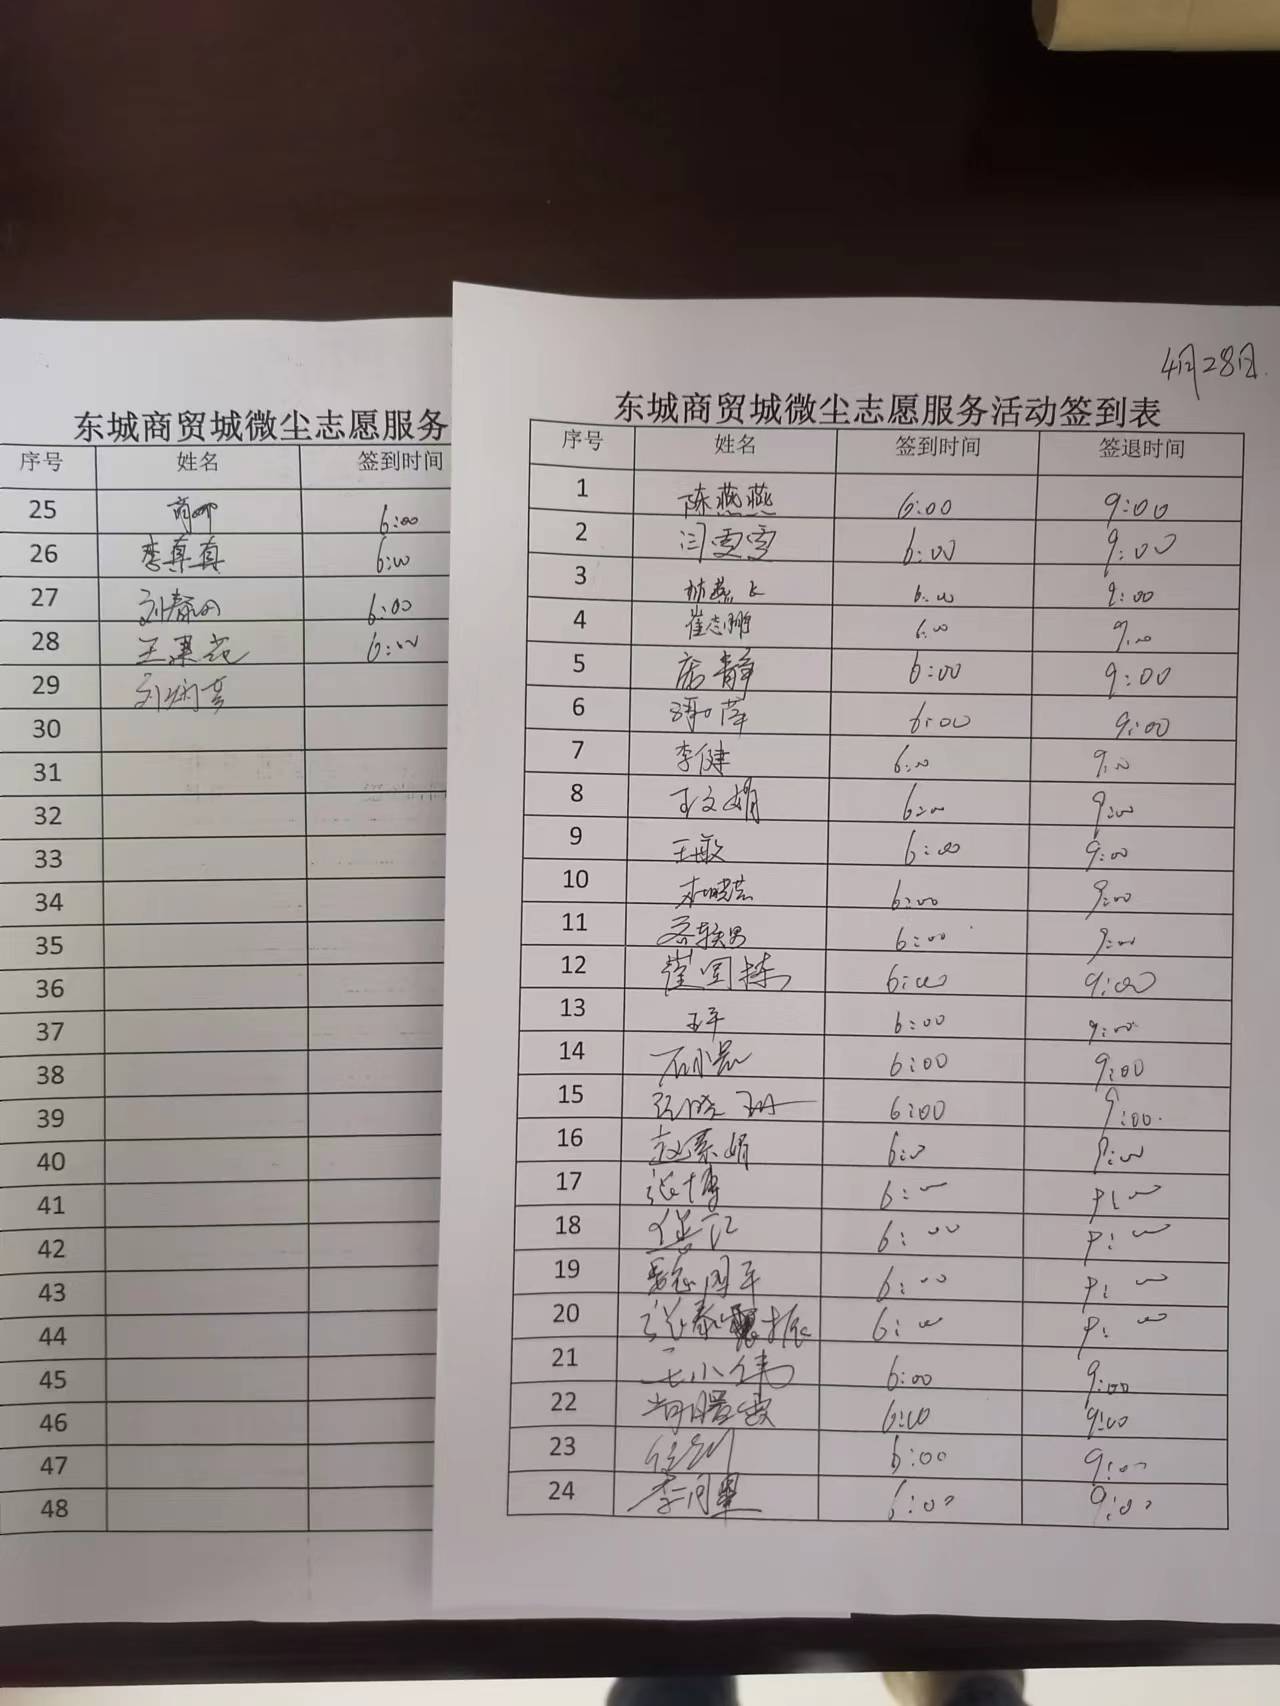 东城商贸城微尘志愿服务
序号 姓名 签到时间
25 6:00
26 李真真 6:00
27 6:00
28 6:00
29
30
31
32
33
34
35
36
37
38
39
40
41
42
43
44
45
46
47
48
4月28日.
东城商贸城微尘志愿服务活动签到表
序号 姓名 签到时间 签退时间
1 陈燕燕 6:00 9:00
2 闫雪雪 6:00 9:00
3 6:00 9:00
4 崔志鹏 6:00 9:00
5 静 6:00 9:00
6 萍 6:00 9:00
7 李健 6:00 9:00
8 王文娟 6:00 9:00
9 王敏 6:00 9:00
10 6:00 9:00
11 6:00 9:00
12 崔国栋 6:00 9:00
13 王平 6:00 9:00
14 石小 6:00 9:00
15 张晓珊 6:00 9:00
16 赵素娟 6:00 9:00
17 张博 6:00 9:00
18 6:00 9:00
19 6:00 9:00
20 张泰振 6:00 9:00
21 王小伟 6:00 9:00
22 6:00 9:00
23 6:00 9:00
24 李 6:00 9:00